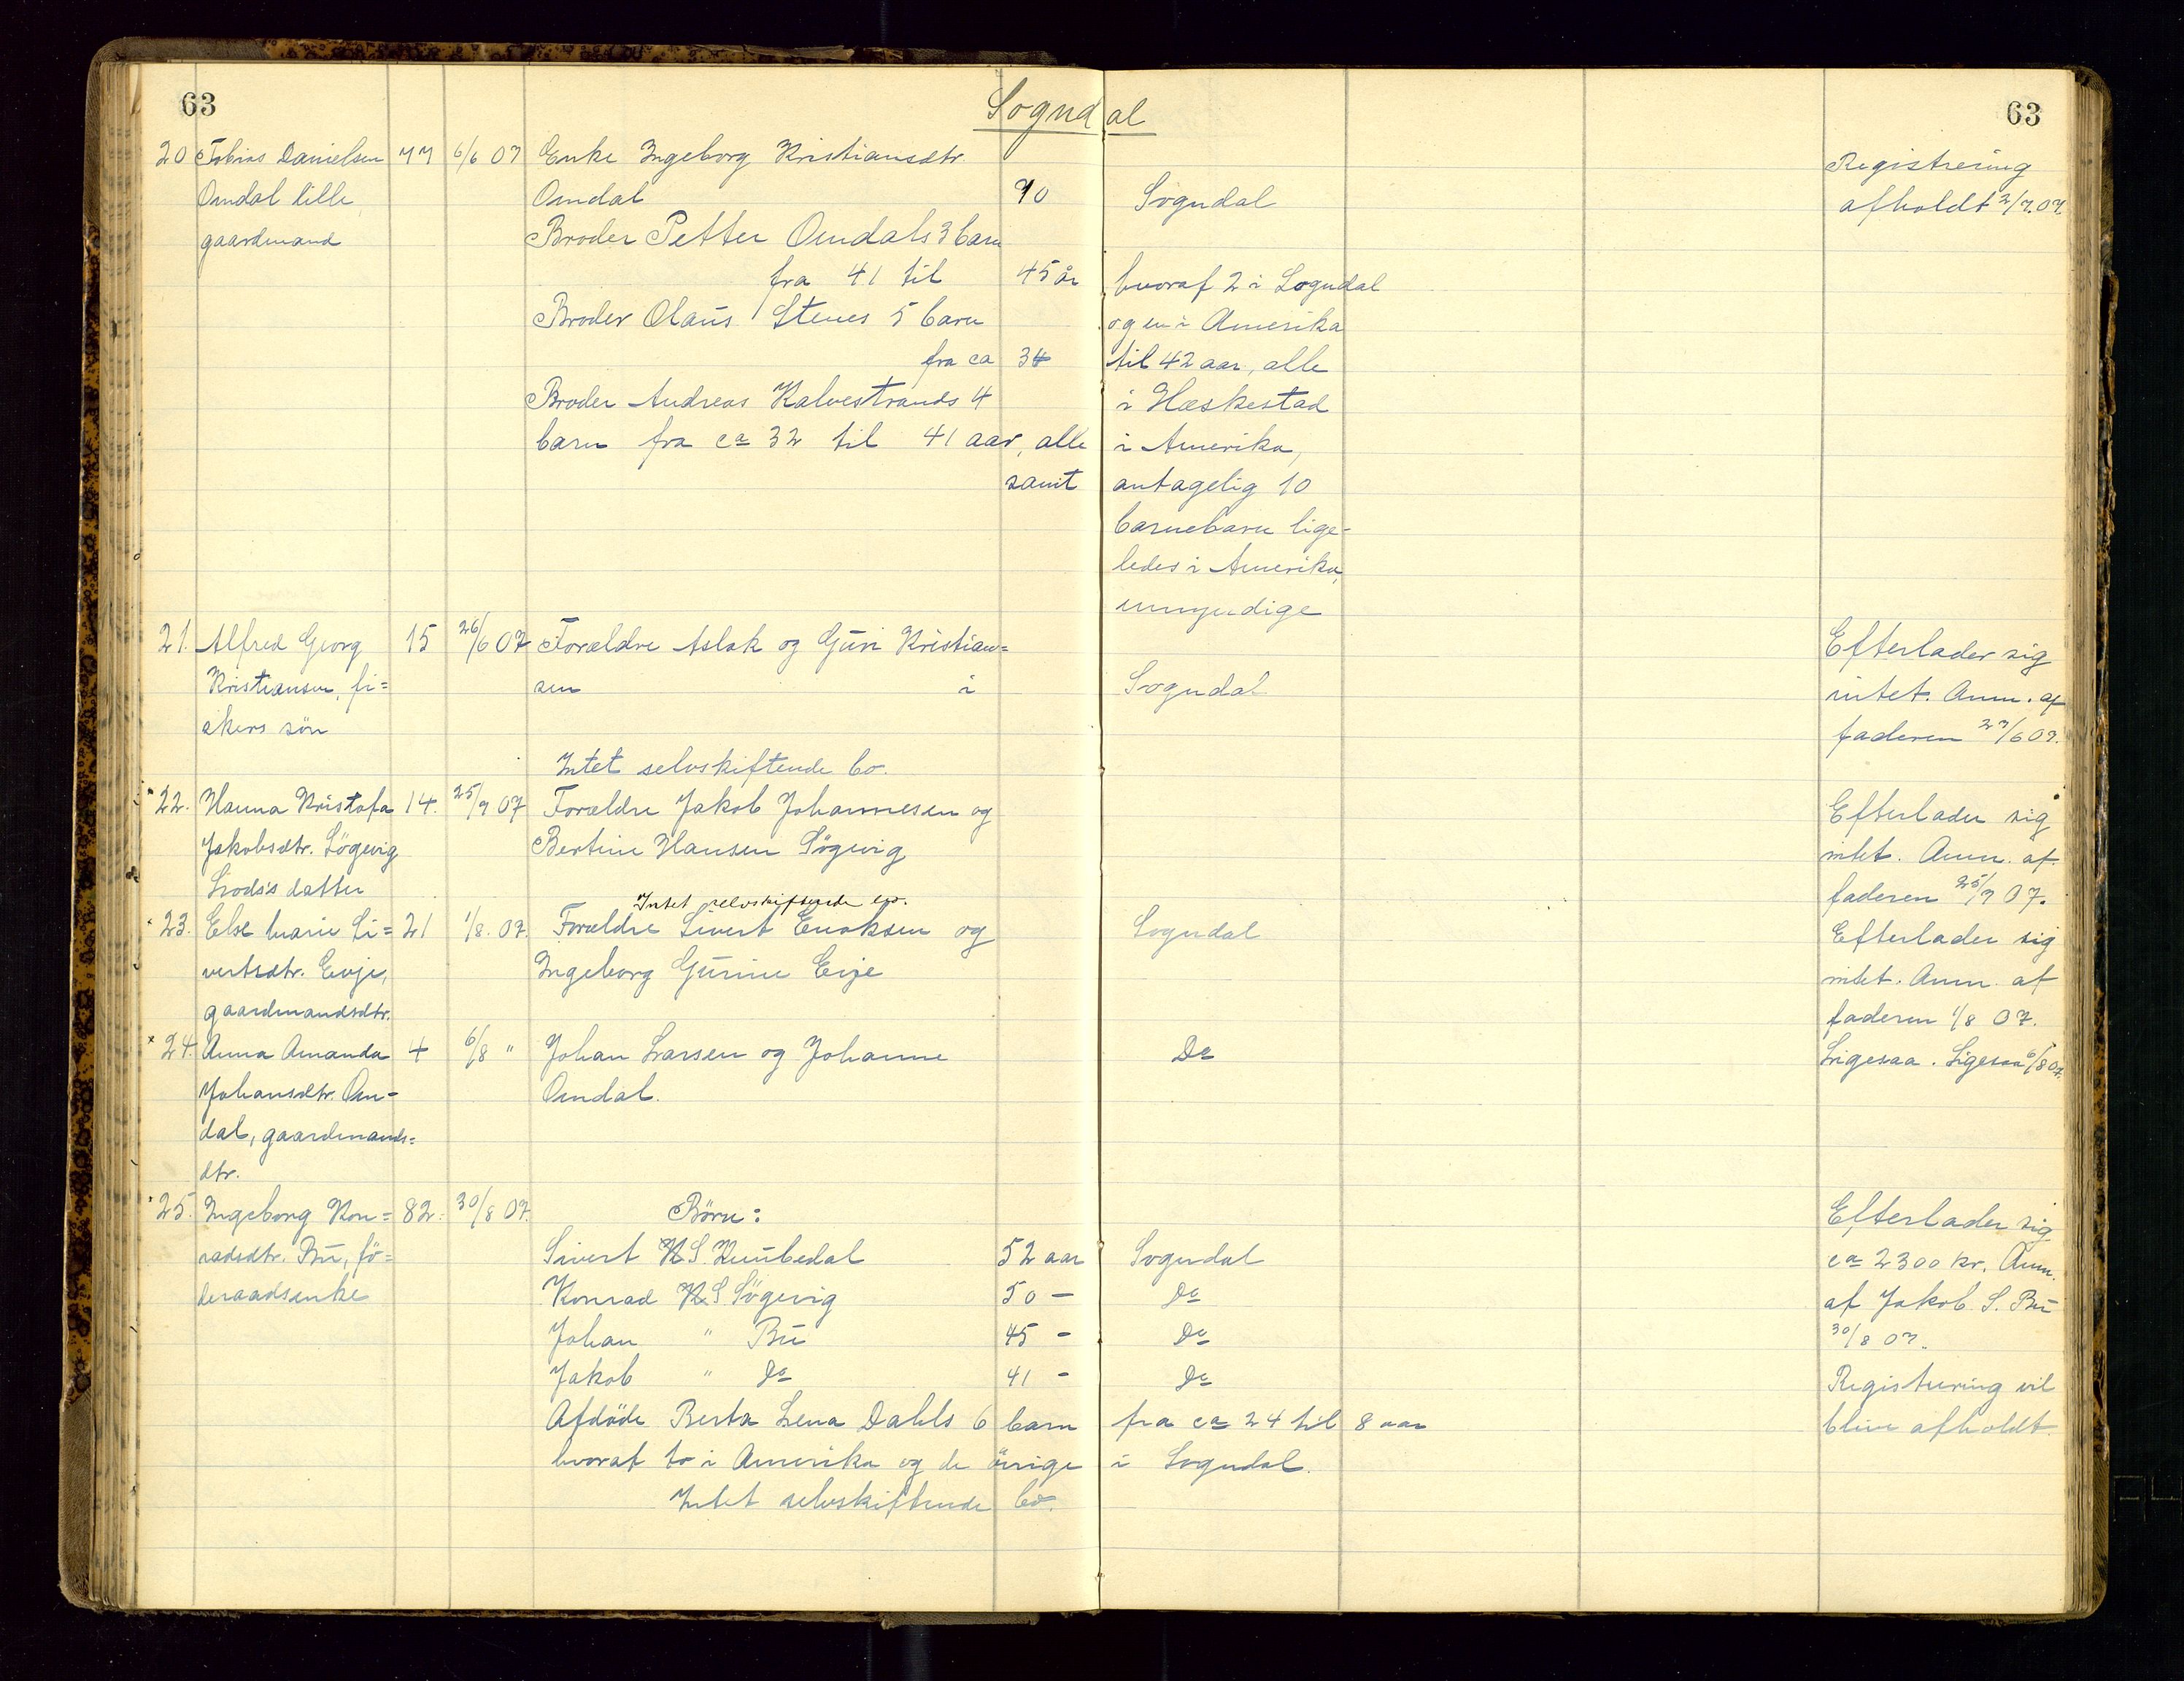 63
Sogndal
63
20 Tobias Danielsen 77 6/6 07 Enke Ingeborg Kristiansdtr. Registrering
Omdal lille Omdal 70 Sogndal afholdt 2/7.07.
gaardmand Broder Petter Omdals 3 barn
fra 41 til 45 år hvoraf 2 i Sogndal
Broder Olaus Stenes 5 barn og en i Amerika
fra ca 34 til 42 aar, alle
Broder Andreas Kalvestrands 4 i Heskestad
barn fra ca 32 til 41 aar, alle i Amerika,
samt antagelig 10
barnebarn lige-
ledes i Amerika,
umyndige
21. Alfred Georg 15 26/6 07 Forældre Aslak og Guri Kristian= Efterlader sig
Kristiansen, fi= sen i Sogndal intet. Anm. af
skers sön faderen 27/6 07.
Intet selvskiftende bo.
22. Hanna Kristofa 14. 25/7 07 Forældre Jakob Johannesen og Efterlader sig
Jakobsdtr. Sögevig Bertine Hansen Sögevig intet. Anm. af
Lods's datter faderen 25/7 07.
Intet selvskiftende bo.
23. Else Marie Si= 21 1/8. 07. Forældre Sivert Enoksen og Sogndal Efterlader sig
vertsdtr. Evje, Ingeborg Gurine Evje intet. Anm. af
gaardmandsdtr. faderen 1/8 07.
24. Anna Amanda 4 6/8 " Johan Larsen og Johanne Do Ligesaa. Ligesaa 6/8 07.
Johansdtr. Om- Omdal.
dal, gaardmands=
dtr.
25. Ingeborg Kon= 82. 30/8 07. Börn: Efterlader sig
radsdtr. Bu, fö= Sivert K S. Knubedal 52 aar Sogndal ca 2300 kr. Anm.
deraadsenke Konrad K. S. Sögevig 50 - Do af Jakob S. Bu
Johan " Bu 45 - Do 30/8 07.
Jakob " Do 41 - Do Registrering vil
Afdöde Berta Lena Dahls 6 barn fra ca 24 til 8 aar blive afholdt.
hvoraf to i Amerika og de övrige i Sogndal.
Intet selvskiftende bo.